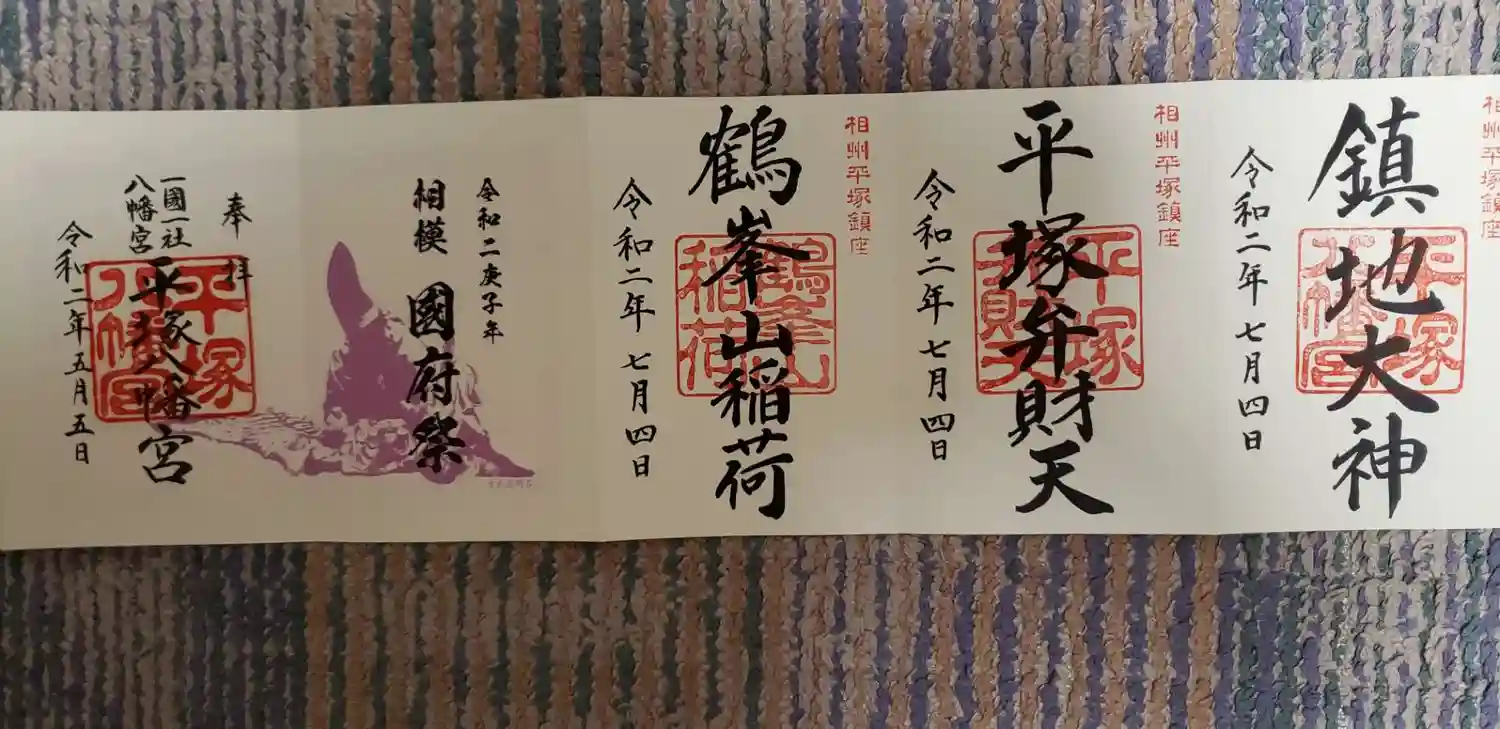 相州平塚鎮座
鎮地大神
平塚八幡宮
令和二年七月四日
相州平塚鎮座
平塚弁財天
平塚弁財天
令和二年七月四日
相州平塚鎮座
鶴峯山稲荷
鶴峯山稲荷
令和二年七月四日
令和二庚子年
相模 國府祭
奉拝
一國一社
八幡宮
平塚八幡宮
平塚八幡宮
令和二年五月五日